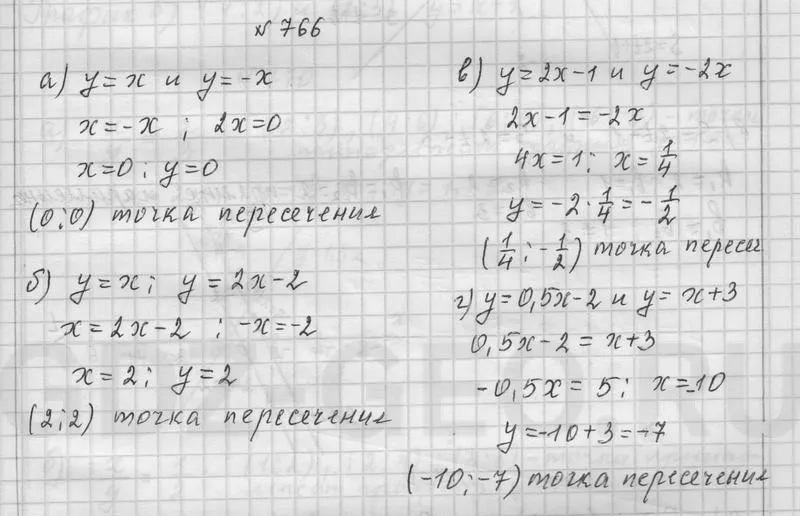 № 766
а) y = x и y = -x
x = -x ; 2x = 0
x = 0 ; y = 0
(0 ; 0) точка пересечения
б) y = x ; y = 2x - 2
x = 2x - 2 ; -x = -2
x = 2 ; y = 2
(2 ; 2) точка пересечения
в) y = 2x - 1 и y = -2x
2x - 1 = -2x
4x = 1 ; x = 1/4
y = -2 · 1/4 = - 1/2
(1/4 ; - 1/2) точка пересеч
г) y = 0,5x - 2 и y = x + 3
0,5x - 2 = x + 3
-0,5x = 5 ; x = -10
y = -10 + 3 = -7
(-10 ; -7) точка пересечения